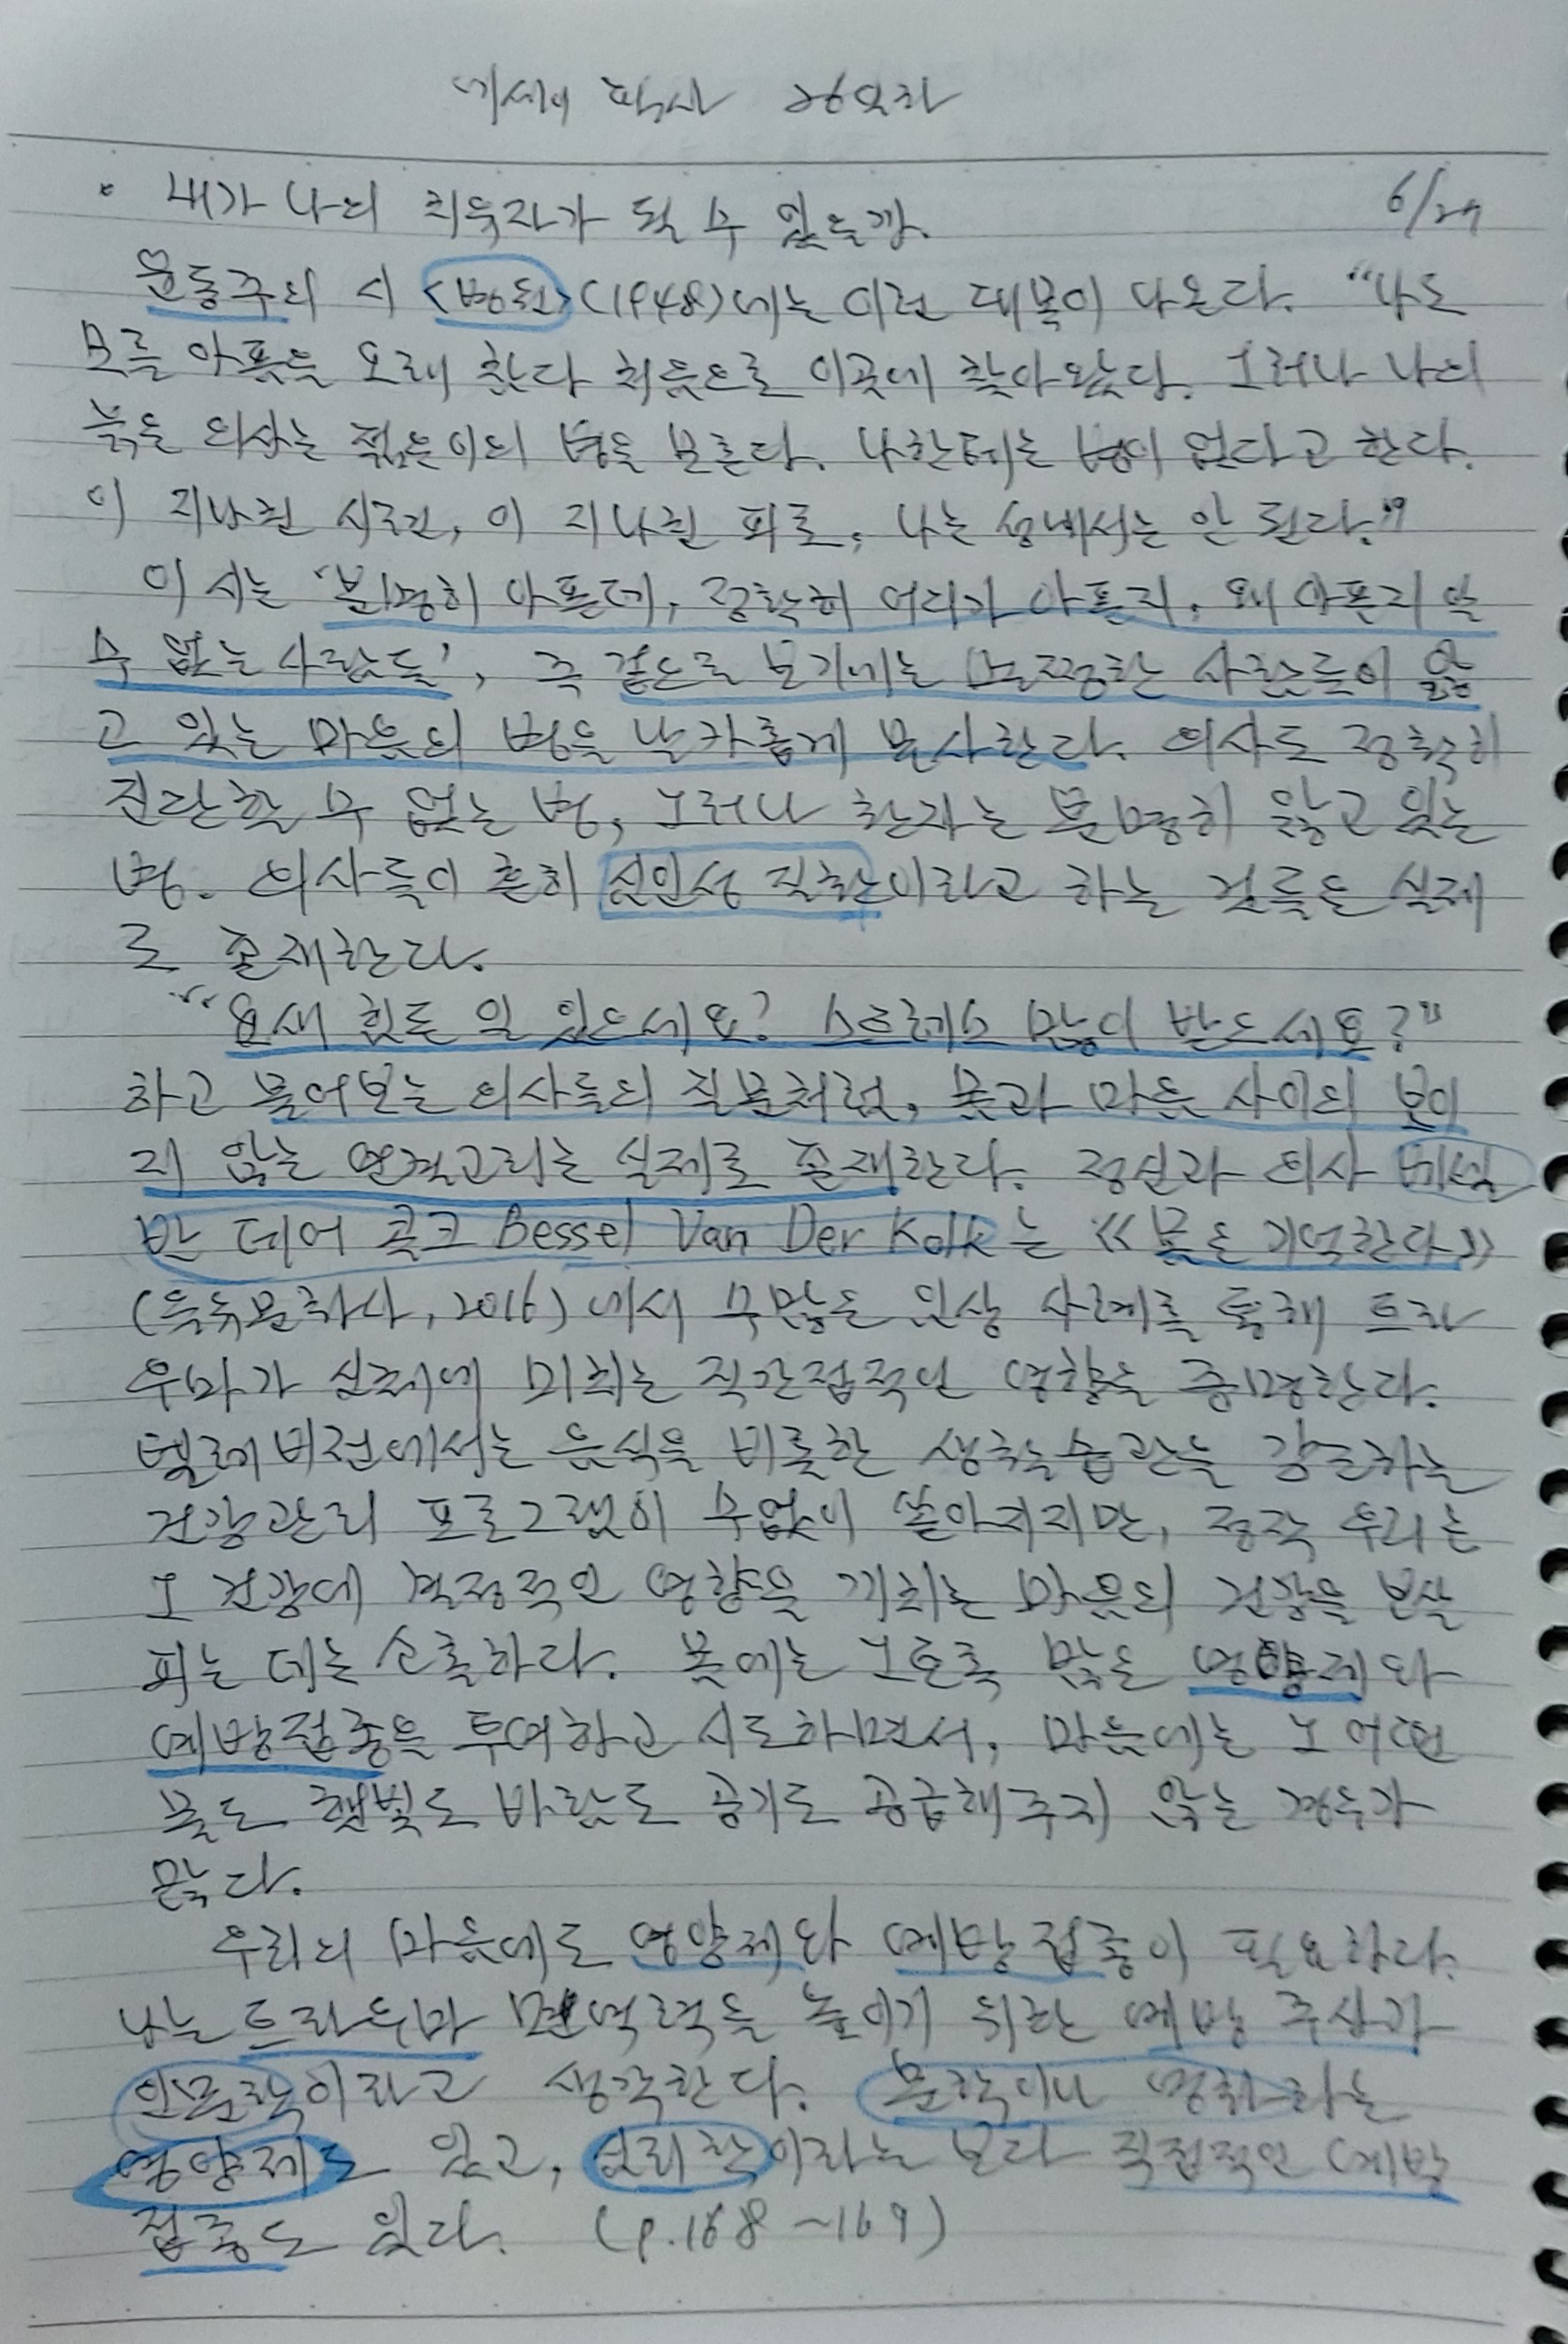 에세이 필사 26일차
• 내가 나의 치유자가 될 수 있을까. 6/29
윤동주의 시 <병원>(1948)에는 이런 대목이 나온다. "나도
모를 아픔을 오래 참다 처음으로 이곳에 찾아왔다. 그러나 나의
늙은 의사는 젊은이의 병을 모른다. 나한테는 병이 없다고 한다.
이 지나친 시련, 이 지나친 피로, 나는 성내서는 안 된다."
이 시는 '분명히 아픈데, 정확히 어디가 아픈지, 왜 아픈지 알
수 없는 사람들', 즉 겉으로 보기에는 멀쩡한 사람들이 앓
고 있는 마음의 병을 날카롭게 묘사한다. 의사도 정확히
진단할 수 없는 병, 그러나 환자는 분명히 앓고 있는
병. 의사들이 흔히 심인성 질환이라고 하는 것들은 실제
로 존재한다.
"요새 힘든 일 있으세요? 스트레스 많이 받으세요?"
하고 물어보는 의사들의 질문처럼, 몸과 마음 사이의 보이
지 않는 연결고리는 실제로 존재한다. 정신과 의사 베셀
반 데어 콜크 Bessel Van Der Kolk는 《몸은 기억한다》
(을유문화사, 2016)에서 수많은 임상 사례를 통해 트라
우마가 신체에 미치는 직간접적인 영향을 증명한다.
텔레비전에서는 음식을 비롯한 생활습관을 강조하는
건강관리 프로그램이 수없이 쏟아지지만, 정작 우리는
그 건강에 결정적인 영향을 끼치는 마음의 건강을 보살
피는 데는 소홀하다. 몸에는 그토록 많은 영양제와
예방접종을 투여하고 시도하면서, 마음에는 그 어떤
물도 햇빛도 바람도 공기도 공급해주지 않는 경우가
많다.
우리의 마음에도 영양제와 예방접종이 필요하다.
나는 트라우마 면역력을 높이기 위한 예방 주사가
인문학이라고 생각한다. 문학이나 영화라는
영양제도 있고, 심리학이라는 보다 직접적인 예방
접종도 있다. (p.168~169)